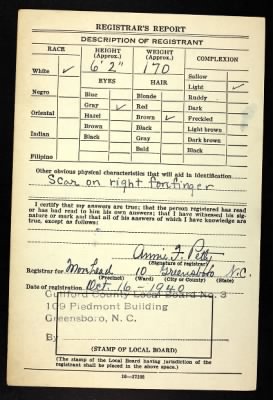 REGISTRAR'S REPORT
DESCRIPTION OF REGISTRANT
RACE HEIGHT (Approx.) WEIGHT (Approx.) COMPLEXION
White ✓ 6' 2" 170 Sallow
EYES HAIR Light ✓
Negro Blue Blonde Ruddy
Gray ✓ Red Dark
Oriental Hazel Brown ✓ Freckled
Brown Black Light brown
Indian Black Gray Dark brown
Bald Black
Filipino
Other obvious physical characteristics that will aid in identification
Scar on right forefinger
I certify that my answers are true; that the person registered has read or has had read to him his own answers; that I have witnessed his signature or mark and that all of his answers of which I have knowledge are true, except as follows:
Annie F. Petty
(Signature of registrar)
Registrar for Morehead 10 Greensboro N.C.
(Precinct) (Ward) (City or County) (State)
Date of registration Oct. 16 - 1940
Guilford County Local Board No. 3
109 Piedmont Building
Greensboro, N. C.
By
(STAMP OF LOCAL BOARD)
(The stamp of the Local Board having jurisdiction of the registrant shall be placed in the above space.)